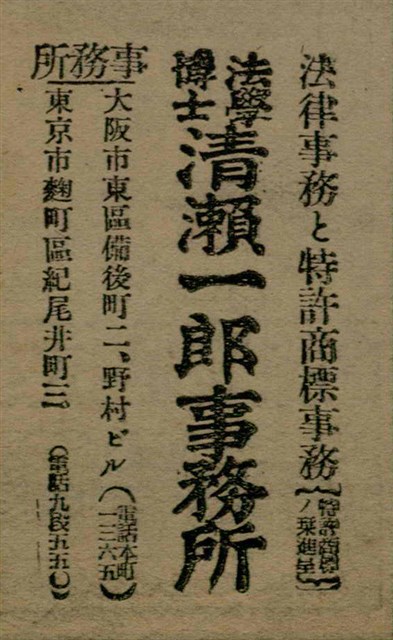 法律事務と特許商標事務（特許商標ノ栞進呈）
法學博士 清瀨一郎事務所
事務所
大阪市東區備後町二、野村ビル（電話本町一三六五）
東京市麹町區紀尾井町三、（電話九段五五〇）